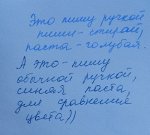 Это пишу ручкой
пиши-стирай,
паста-голубая.
А это-пишу
обычной ручкой,
синяя паста,
для сравнения
цвета))